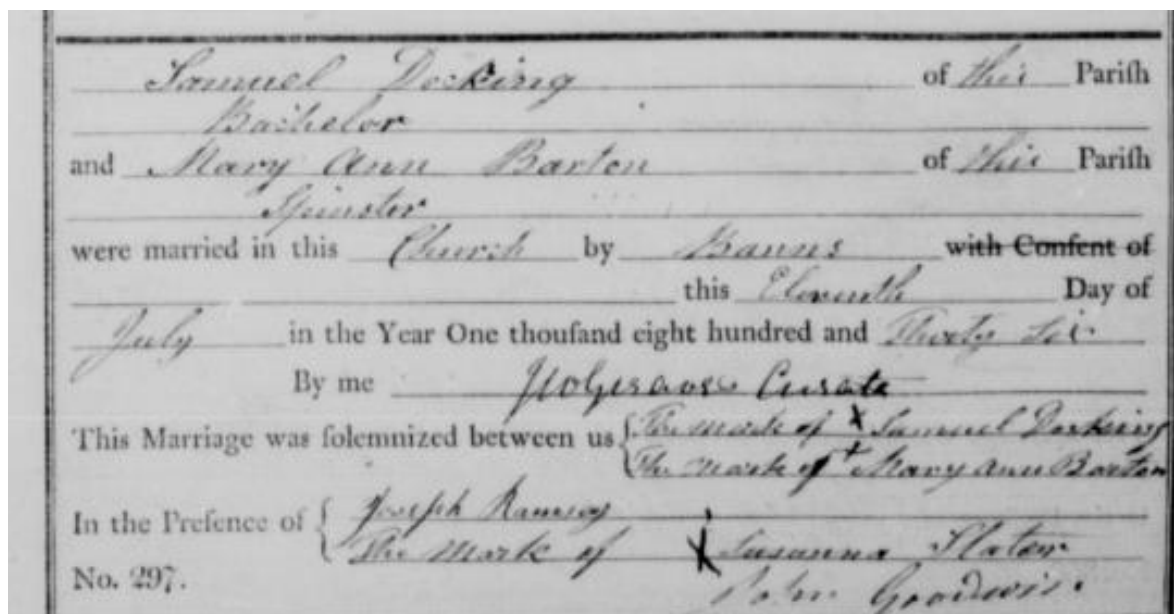 Samuel Docking of this Pariſh
Bachelor
and Mary Ann Barton of this Pariſh
Spinster
were married in this Church by Banns with Conſent of
this Eleventh Day of
July in the Year One thouſand eight hundred and Thirty Six
By me Curate
This Marriage was ſolemnized between us { The mark of X Samuel Docking
The mark of + Mary Ann Barton
In the Preſence of { Joseph Ramsay
The Mark of X Susanna Slator
No. 297. John Goodwin.